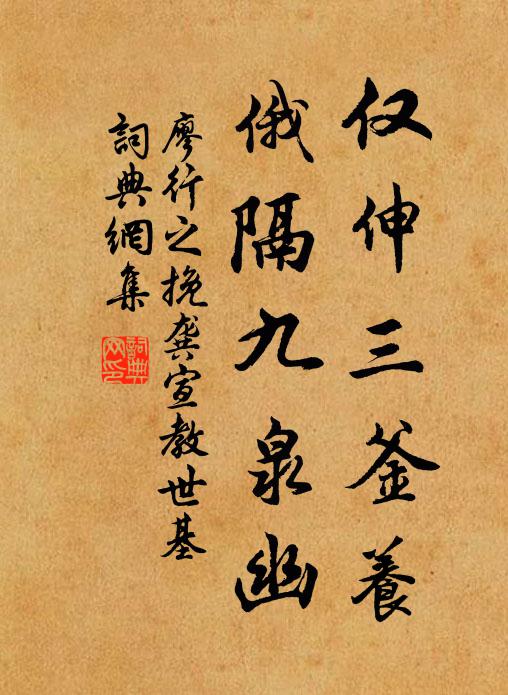 仅伸三釜養
俄隔九泉幽
廖行之挽龚宣教世基
詞典網集
詞典網印